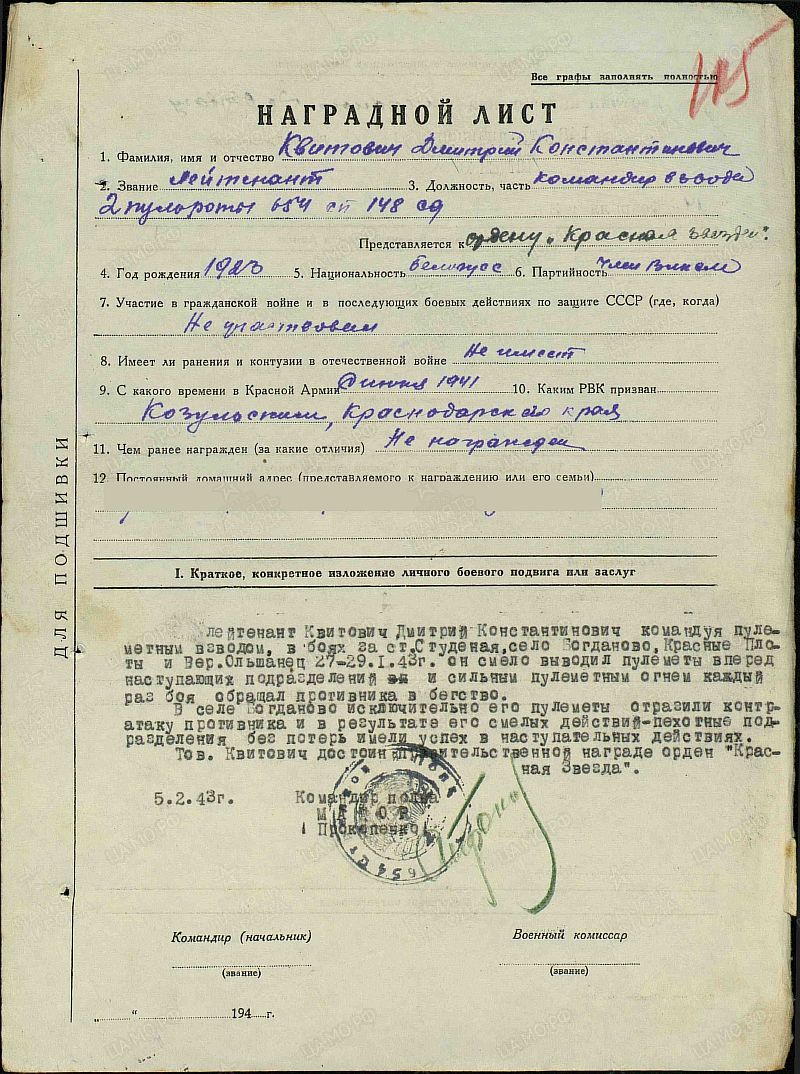 Все графы заполнять полностью
НАГРАДНОЙ ЛИСТ
1. Фамилия, имя и отчество Квитович Дмитрий Константинович
2. Звание Лейтенант 3. Должность, часть командир взвода
2 пульроты 654 сп 148 сд
Представляется к ордену „Красная звезда".
4. Год рождения 1923 5. Национальность белорусс 6. Партийность член ВЛКСМ
7. Участие в гражданской войне и в последующих боевых действиях по защите СССР (где, когда)
Не участвовал
8. Имеет ли ранения и контузии в отечественной войне Не имеет
9. С какого времени в Красной Армии С июня 1941 10. Каким РВК призван
Козульским, Краснодарского края
11. Чем ранее награжден (за какие отличия) Не награжден
12 Постоянный домашний адрес (представляемого к награждению или его семьи)
ДЛЯ ПОДШИВКИ
I. Краткое, конкретное изложение личного боевого подвига или заслуг
лейтенант Квитович Дмитрий Константинович командуя пуле-
метным взводом, в боях за ст.Студеная,село Богданово,Красные Пло-
ты и Вер.Ольшанец 27-29.I.43г. он смело выводил пулеметы вперед
наступающих подразделений и сильным пулеметным огнем каждый
раз боя обращал противника в бегство.
В селе Богданово исключительно его пулеметы отразили контр-
атаку противника и в результате его смелых действий-пехотные под-
разделения без потерь имели успех в наступательных действиях.
Тов. Квитович достоин правительственной награде орден "Крас-
ная Звезда".
5.2.43г. Командир полка
МАЙОР
/Прокопенко/
Командир (начальник) Военный комиссар
(звание) (звание)
„ “ 194 г.